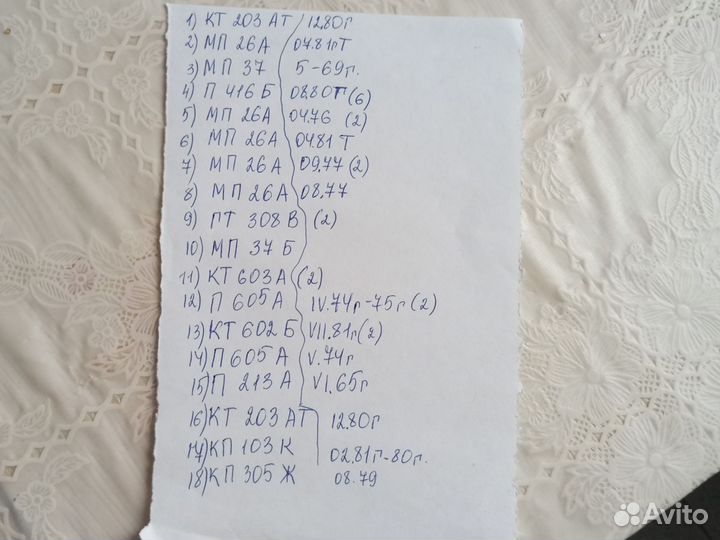 1) КТ 203 АТ 12.80г
2) МП 26А 04.81гТ
3) МП 37 5-69г.
4) П 416 Б 08.80Г (6)
5) МП 26А 04.76 (2)
6) МП 26А 04.81 Т
7) МП 26А 09.77 (2)
8) МП 26А 08.77
9) ГТ 308 В (2)
10) МП 37 Б
11) КТ 603 А (2)
12) П 605 А IV.74г-75г (2)
13) КТ 602 Б VII.81г (2)
14) П 605 А V.74г
15) П 213 А VI.65г
16) КТ 203 АТ 12.80г
17) КП 103 К 02.81г-80г.
18) КП 305 Ж 08.79
Avito